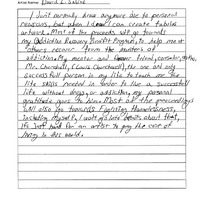 Artist Name: David L. Sabine
I don't normally draw anymore due to personal
reasons, but when I draw I can create fabulous
artwork. Most of the proceeds will go towards
my Addiction Recovery Benefit Program, to help
others recover from the of
addiction. My mentor and friend, counselor,
Mr. Churchill, (Louis Churchwell), the one and only
successful person in my life to teach me the
life skills needed in order to live a successful
life without drugs, or addiction, my personal
gratitude goes to him. Most of the proceeds
will also go towards Fighting homelessness,
including myself, I won't lie about that,
it's just hard for an artist to pay the cost of
living in this world.